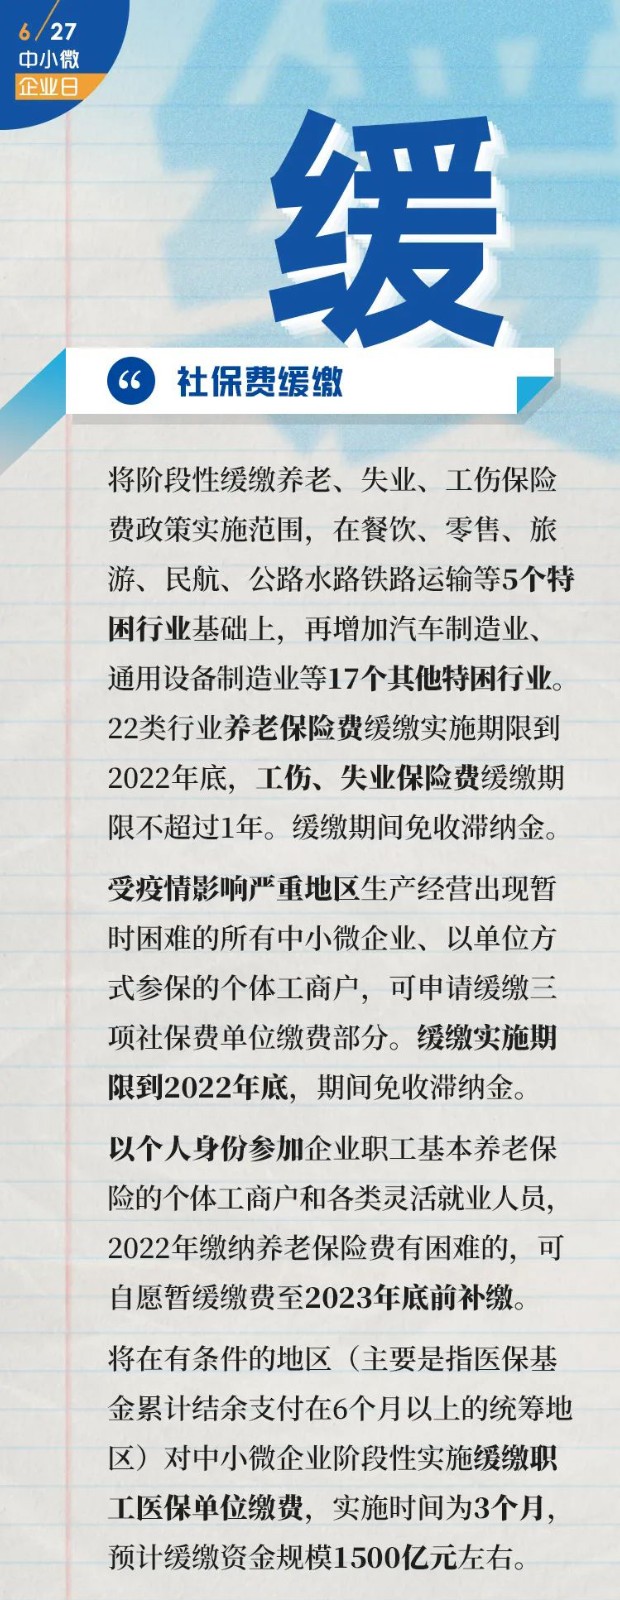 6/27
中小微
企业日
缓
“ 社保费缓缴
将阶段性缓缴养老、失业、工伤保险
费政策实施范围，在餐饮、零售、旅
游、民航、公路水路铁路运输等5个特
困行业基础上，再增加汽车制造业、
通用设备制造业等17个其他特困行业。
22类行业养老保险费缓缴实施期限到
2022年底，工伤、失业保险费缓缴期
限不超过1年。缓缴期间免收滞纳金。
受疫情影响严重地区生产经营出现暂
时困难的所有中小微企业、以单位方
式参保的个体工商户，可申请缓缴三
项社保费单位缴费部分。缓缴实施期
限到2022年底，期间免收滞纳金。
以个人身份参加企业职工基本养老保
险的个体工商户和各类灵活就业人员，
2022年缴纳养老保险费有困难的，可
自愿暂缓缴费至2023年底前补缴。
将在有条件的地区（主要是指医保基
金累计结余支付在6个月以上的统筹地
区）对中小微企业阶段性实施缓缴职
工医保单位缴费，实施时间为3个月，
预计缓缴资金规模1500亿元左右。